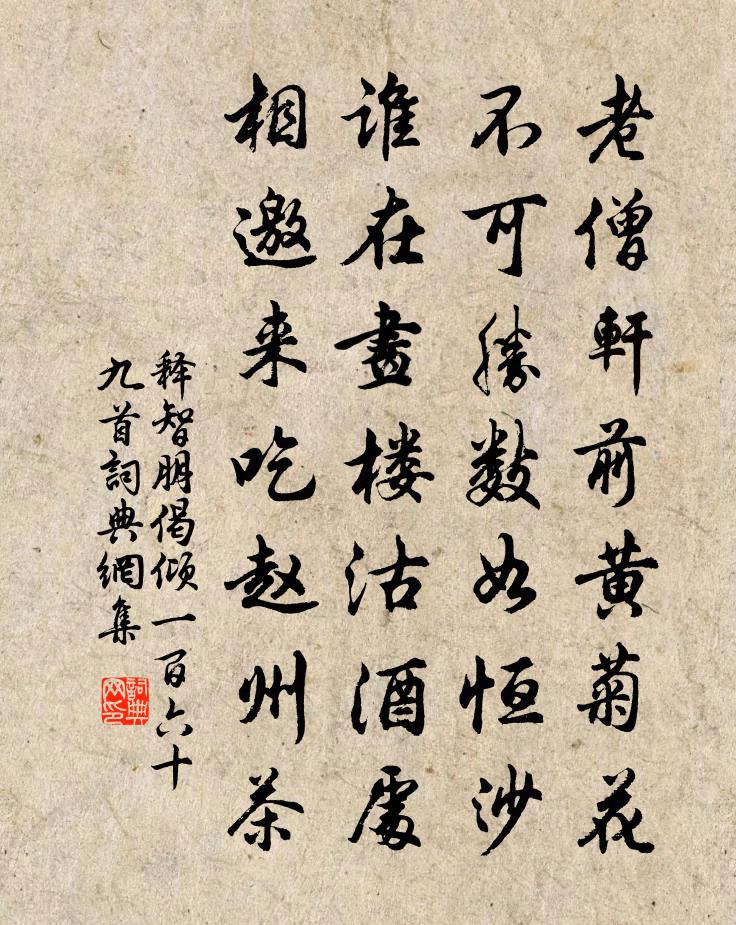 老僧軒前黄菊花
不可勝数如恒沙
誰在畫楼沽酒處
相邀来吃赵州茶
释智朋偈倾一百六十
九首詞典網集
詞典
网印